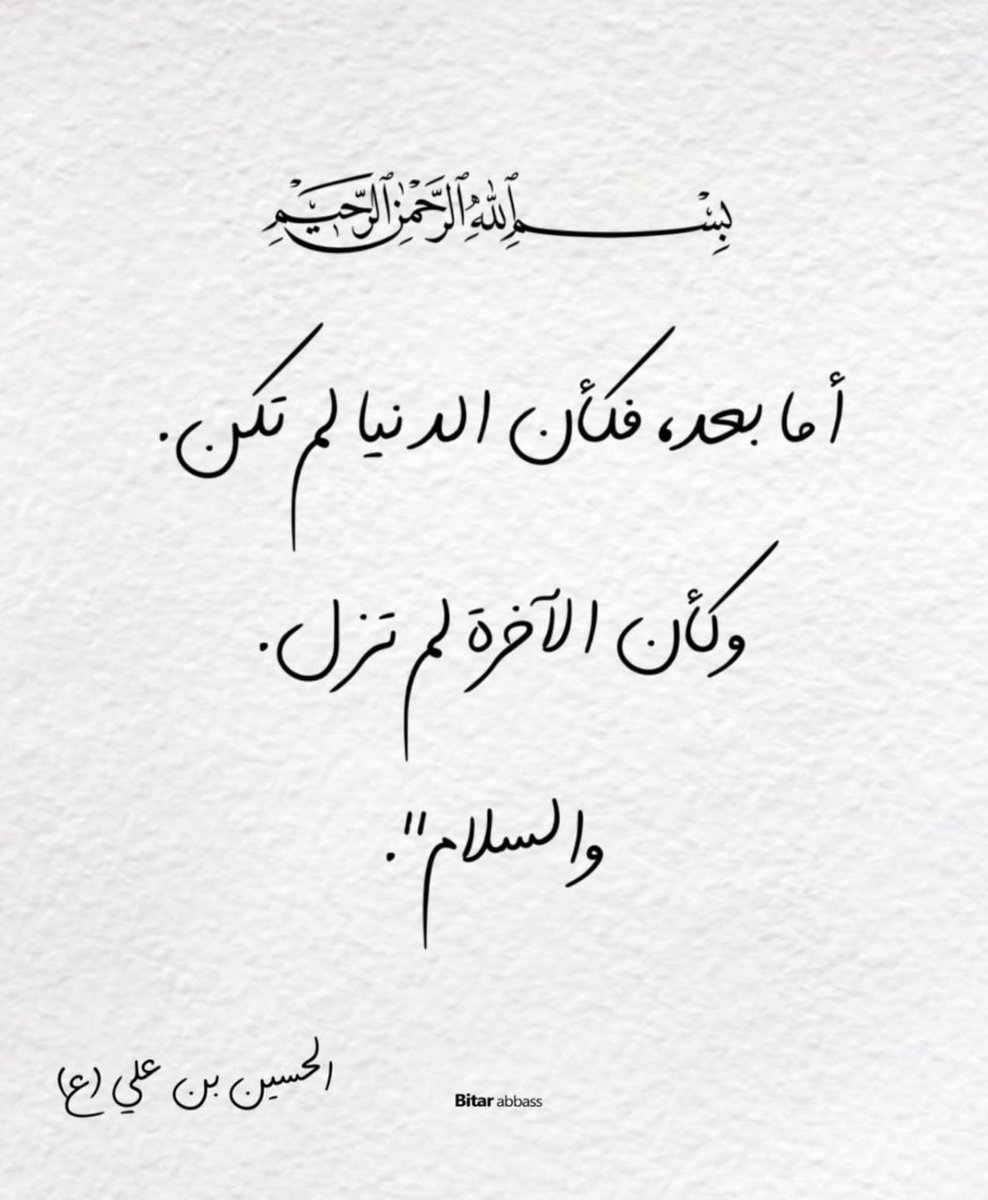 بِسْمِ ٱللَّهِ ٱلرَّحْمَٰنِ ٱلرَّحِيمِ
أما بعد، فكأن الدنيا لم تكن.
وكأن الآخرة لم تزل.
والسلام".
الحسين بن علي (ع)
Bitar abbass